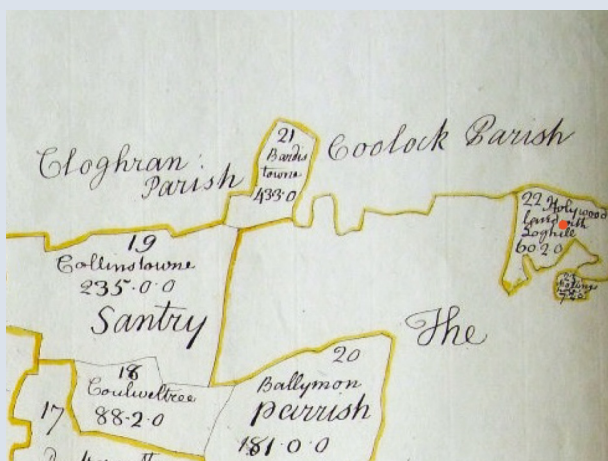 Cloghran
Parish
21
Bardis
towne
433·0
Coolock Parish
22 Holywood
60 2 0
19
Collinstowne
235·0·0
Santry
The
18
Coulweltree
88·2·0
17
20
Ballymon
parrish
181·0·0